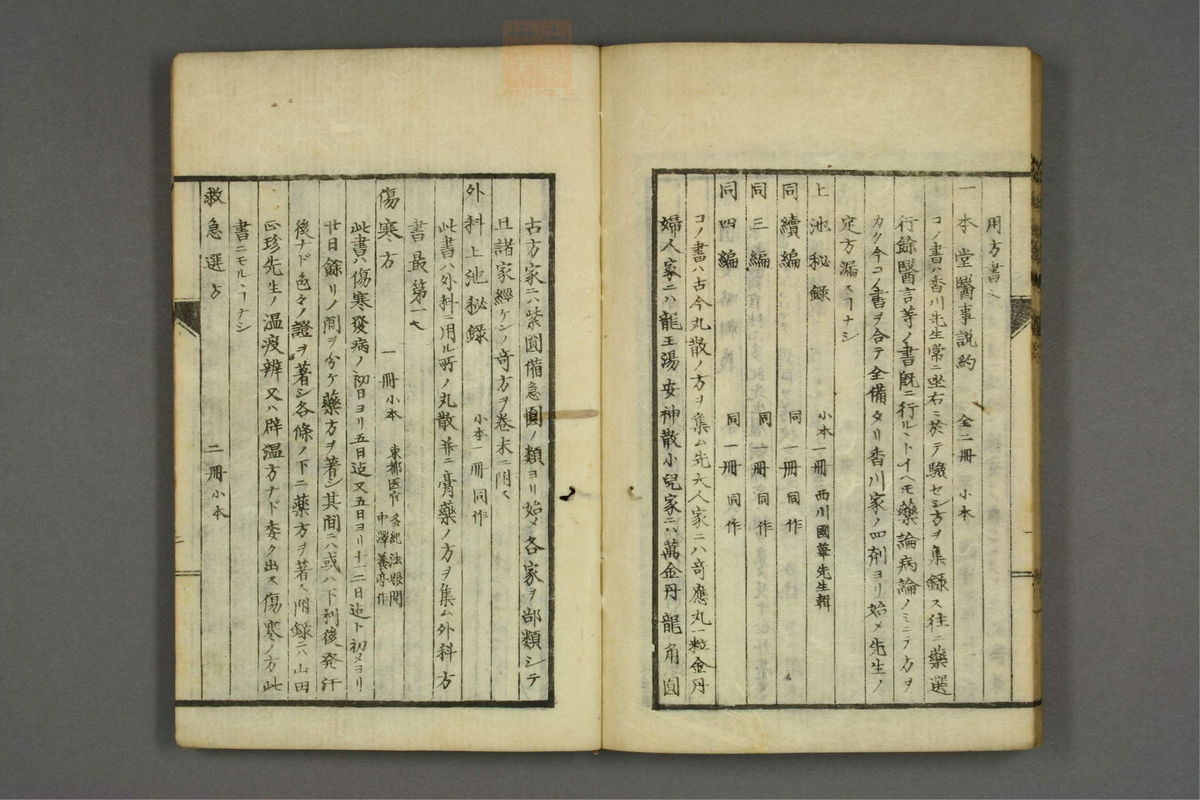 用方書ヘ
一本堂醫事説約 全二冊 小本
コノ書ハ香川先生常ニ坐右ニ於テ驗セシ方ヲ集録ス往ニ藥選
行餘醫言等ノ書既ニ行ルヽトイヘモ藥論病論ノミニテ方ヲ
カク今コノ書ヲ合テ全備タリ香川家ノ四劑ヨリ始メ先生ノ
定方漏スヿナシ
上池秘録 小本一冊 西川國華先生輯
同續編 同一冊 同作
同三編 同一冊 同作
同四編 同一冊 同作
コノ書ハ古今丸散ノ方ヲ集ム先大人家ニハ奇應丸一粒金丹
婦人家ニハ龍王湯安神散小兒家ニハ萬金丹龍角圓
古方家ニハ紫圓備急圓ノ類ヨリ始メ各家ヲ部類シテ
且諸家經ケンノ奇方ヲ巻末ニ附ス
外科上池秘録 小本一冊 同作
此書ハ外科ニ用ル所ノ丸散并ニ膏藥ノ方ヲ集ム外科方
書最第一也
傷寒方 一冊小本 東都医官 多紀法眼閲 中澤養亭作
此書ハ傷寒發病ノ初日ヨリ五日迠又五日ヨリ十二日迠ト初メヨリ
廿日餘リノ間ヲ分ケ藥方ヲ著シ其間ニハ或ハ下利後発汗
後ナド色々ノ證ヲ著シ各條ノ下ニ藥方ヲ著ス附録ニハ山田
正珍先生ノ温疫辨又ハ辟温方ナド委ク出ス傷寒ノ方此
書ニモルヽヿナシ
救急選方 二冊小本